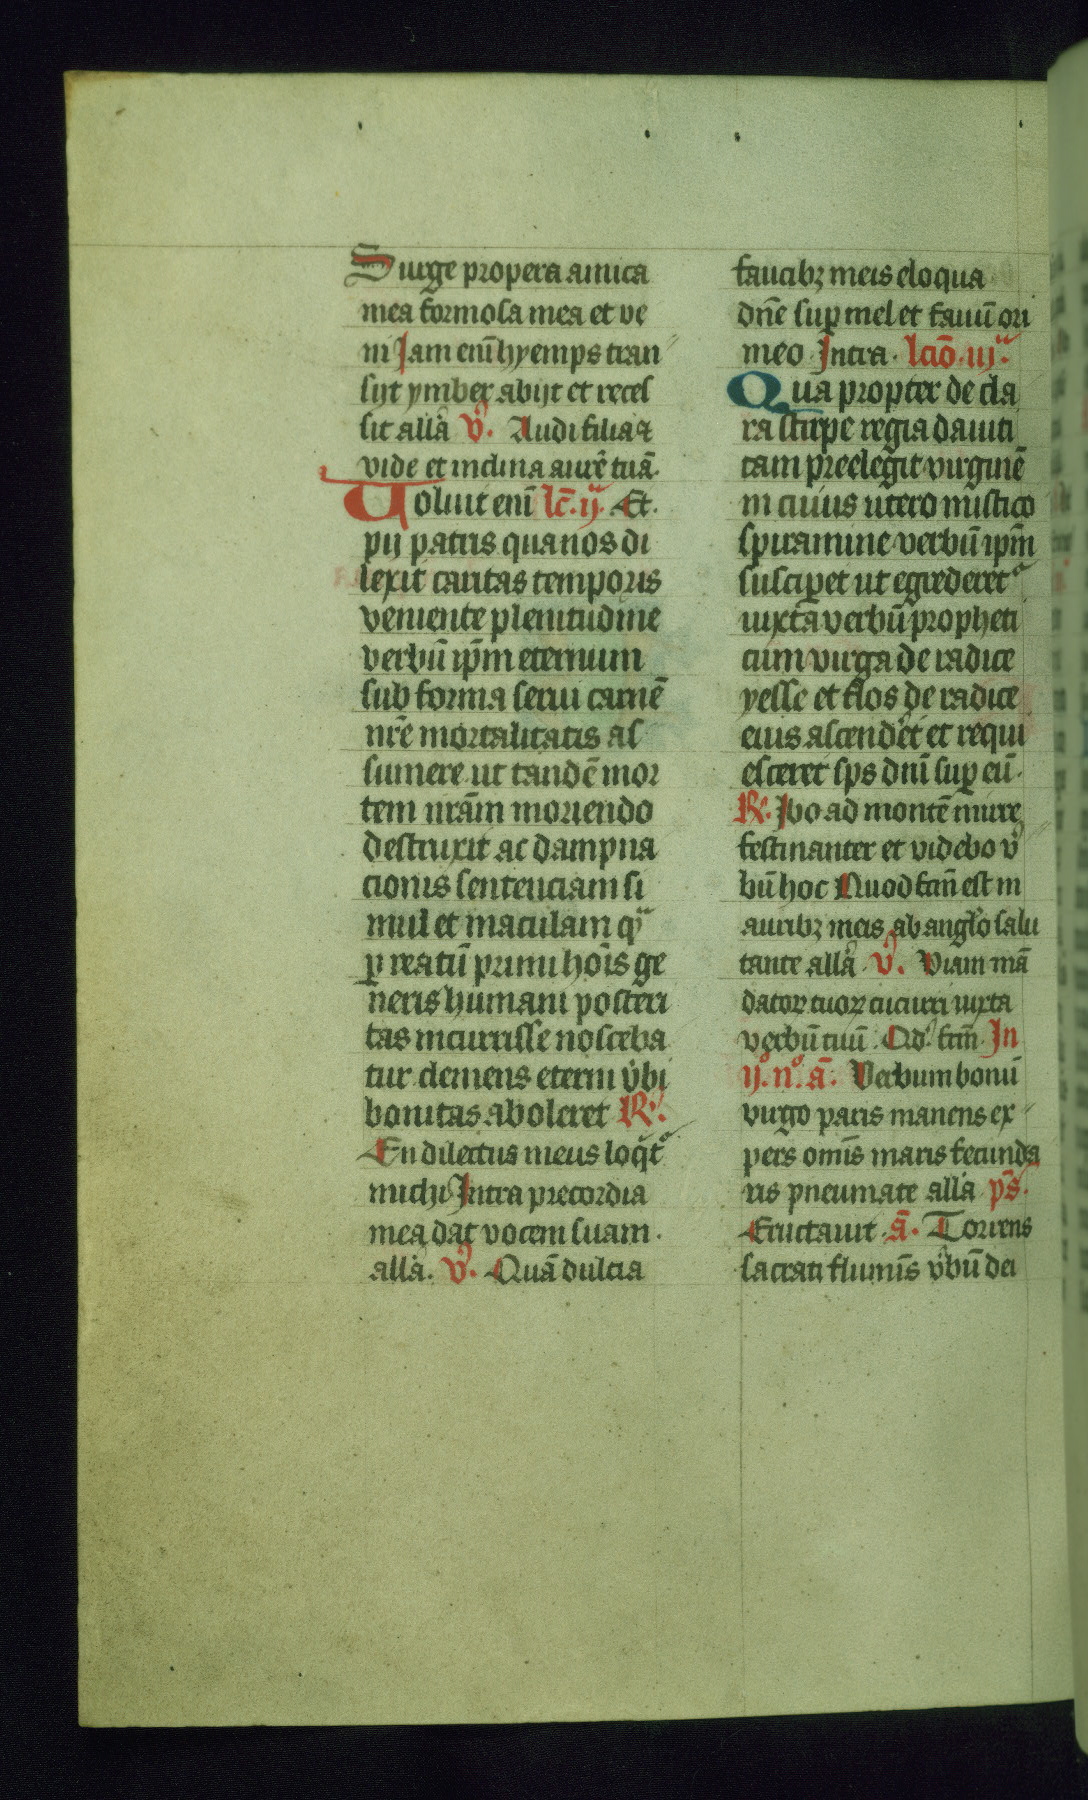 Surge propera amica
mea formosa mea et ve
ni Jam enī hyemps tran
sijt ymber abijt et reces
sit allā v̓. Audi filia ⁊
vide et inclina aurē tuā.
Uoluit enī lc̄. ij. Et.
pij patris qua nos di
lexit caritas temporis
veniente plenitudine
verbū ip̄m eternum
sub forma serui carnē
nr̄e mortalitatis as
sumere ut tandē mor
tem nrām moriendo
destruxit ac dampna
cionis sentenciam si
mul et maculam qͣ
ꝑ reatū primi hoīs ge
neris humani posteri
tas incurrisse nosceba
tur clemens eterni v̓bi
bonitas aboleret ℟.
En dilectus meus loqͥtͬ
michi Intra precordia
mea dat vocem suam.
allā. v̓. Quā dulcia
faucibꝫ meis eloqua
dn̄e suꝑ mel et fauū ori
meo Intra. lcīo. iijͣ.
Qua propter de cla
ra stirpe regia dauiti
cam preelegit virginē
in cuius utero mistico
spiramine verbū ip̄m
susciꝑet ut egrederetͬ
iuxta verbū propheti
cum virga de radice
yesse et flos de radice
eius ascend̓et et requi
esceret sp̄s dnī suꝑ eū.
℟. Ibo ad montē mirre
festinanter et videbo v̓
bū hoc Quod fcm̄ est in
auribꝫ meis ab angl̓o salu
tante allā v̓. Viam mā
datoꝝ tuoꝝ cucurri iuxta
verbū tuū. Qd̓ fcm̄. In
ijº. nº. ā. Verbum bonū
virgo paris manens ex
pers omīs maris fecunda
ris pneumate allā ps̄.
Eructauit. ā. Torrens
sacrati flumīs v̓bū dei